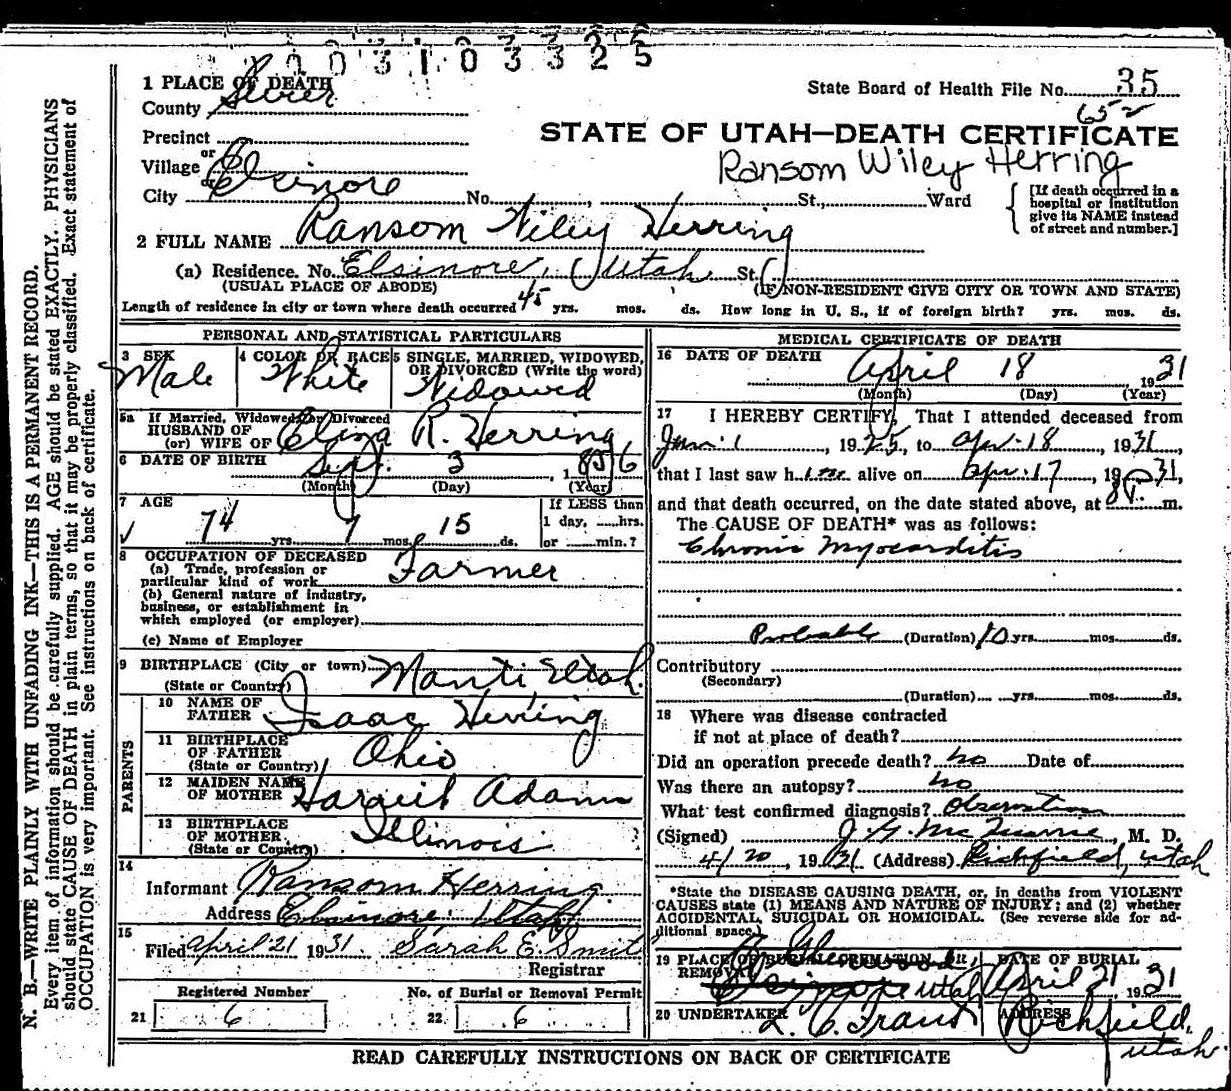 0 0 3 1 0 3 3 2 5
1 PLACE OF DEATH
County Sevier
State Board of Health File No. 35
652
Precinct
or
Village
or
City Elsinore No. , St., Ward
STATE OF UTAH—DEATH CERTIFICATE
Ransom Wiley Herring
[If death occurred in a
hospital or institution
give its NAME instead
of street and number.]
2 FULL NAME Ransom Wiley Herring
(a) Residence. No. Elsinore, Utah St.
(USUAL PLACE OF ABODE) (IF NON-RESIDENT GIVE CITY OR TOWN AND STATE)
Length of residence in city or town where death occurred 45 yrs. mos. ds. How long in U. S., if of foreign birth? yrs. mos. ds.
PERSONAL AND STATISTICAL PARTICULARS
3 SEX
Male
4 COLOR OR RACE
White
5 SINGLE, MARRIED, WIDOWED,
OR DIVORCED (Write the word)
Widowed
5a If Married, Widowed or Divorced
HUSBAND OF
(or) WIFE OF Eliza R. Herring
6 DATE OF BIRTH Sept. 3 1856
(Month) (Day) (Year)
7 AGE
74 yrs. 7 mos. 15 ds.
If LESS than
1 day, hrs.
or min.?
8 OCCUPATION OF DECEASED
(a) Trade, profession or
particular kind of work Farmer
(b) General nature of industry,
business, or establishment in
which employed (or employer)
(c) Name of Employer
9 BIRTHPLACE (City or town) Manti Utah
(State or Country)
PARENTS
10 NAME OF
FATHER Isaac Herring
11 BIRTHPLACE
OF FATHER Ohio
(State or Country)
12 MAIDEN NAME
OF MOTHER Harriet Adams
13 BIRTHPLACE
OF MOTHER Illinois
(State or Country)
14
Informant Ransom Herring
Address Elsinore Utah
15
Filed April 21 1931. Sarah E. Smit
Registrar
Registered Number
21 6
No. of Burial or Removal Permit
22 6
MEDICAL CERTIFICATE OF DEATH
16 DATE OF DEATH April 18 1931
(Month) (Day) (Year)
17 I HEREBY CERTIFY, That I attended deceased from
Jan. 1, 1925, to Apr. 18 1931,
that I last saw him alive on Apr. 17, 1931,
and that death occurred, on the date stated above, at 8 P. m.
The CAUSE OF DEATH* was as follows:
Chronic Myocarditis
Probable (Duration) 10 yrs. mos. ds.
Contributory
(Secondary)
(Duration) yrs. mos. ds.
18 Where was disease contracted
if not at place of death?
Did an operation precede death? no Date of
Was there an autopsy? no
What test confirmed diagnosis? Observation
(Signed) J. G. Mc , M. D.
4/20, 1931 (Address) Richfield, Utah
*State the DISEASE CAUSING DEATH, or, in deaths from VIOLENT
CAUSES state (1) MEANS AND NATURE OF INJURY; and (2) whether
ACCIDENTAL, SUICIDAL OR HOMICIDAL. (See reverse side for ad-
ditional space.)
19 PLACE OF BURIAL, CREMATION, OR
REMOVAL Glenwood, Elsinore Utah
DATE OF BURIAL
April 21, 1931
20 UNDERTAKER
L. C.
ADDRESS
Richfield,
Utah.
READ CAREFULLY INSTRUCTIONS ON BACK OF CERTIFICATE
N. B.—WRITE PLAINLY WITH UNFADING INK—THIS IS A PERMANENT RECORD.
Every item of information should be carefully supplied. AGE should be stated EXACTLY. PHYSICIANS
should state CAUSE OF DEATH in plain terms, so that it may be properly classified. Exact statement of
OCCUPATION is very important. See instructions on back of certificate.